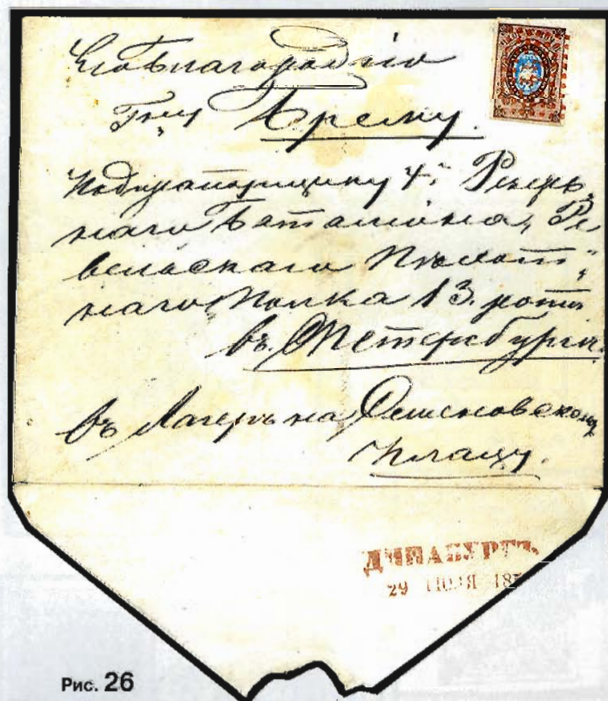 Его Благородію
Гну Арему.
Подпрапорщику 4го Резерв
наго Баталіона, Ре
вельскаго Пѣхот
наго Полка 13. роты
въ Петербургѣ.
въ Лагерь на Семеновскому
плацу.
ДИНАБУРГЪ
29 ІЮЛЯ 185
Рис. 26